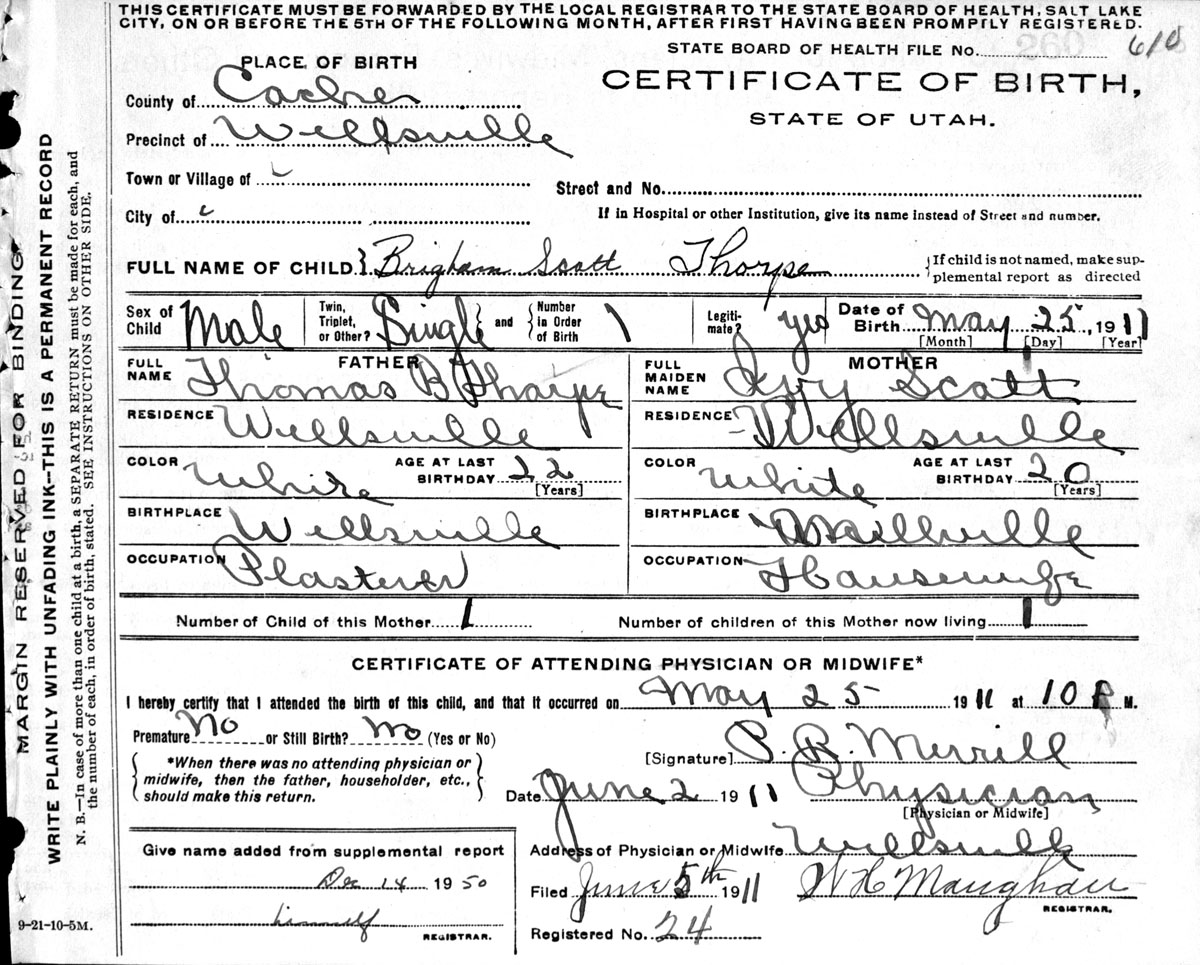 THIS CERTIFICATE MUST BE FORWARDED BY THE LOCAL REGISTRAR TO THE STATE BOARD OF HEALTH, SALT LAKE
CITY, ON OR BEFORE THE 5TH OF THE FOLLOWING MONTH, AFTER FIRST HAVING BEEN PROMPTLY REGISTERED.
STATE BOARD OF HEALTH FILE No. 260
PLACE OF BIRTH
CERTIFICATE OF BIRTH,
STATE OF UTAH.
County of Cache
Precinct of Wellsville
Town or Village of
Street and No.
City of
If in Hospital or other Institution, give its name instead of Street and number.
FULL NAME OF CHILD } Brigham Scott Thorpe { If child is not named, make sup-
plemental report as directed
Sex of Child Male Twin, Triplet, or Other? Single and Number in Order of Birth 1 Legiti-mate? yes Date of Birth May 25, 1911
[Month] [Day] [Year]
FATHER MOTHER
FULL NAME Thomas B Thorpe FULL MAIDEN NAME Ivy Scott
RESIDENCE Wellsville RESIDENCE Wellsville
COLOR White AGE AT LAST BIRTHDAY 22 [Years] COLOR White AGE AT LAST BIRTHDAY 20 [Years]
BIRTHPLACE Wellsville BIRTHPLACE Millville
OCCUPATION Plasterer OCCUPATION Housewife
Number of Child of this Mother 1 Number of children of this Mother now living 1
CERTIFICATE OF ATTENDING PHYSICIAN OR MIDWIFE*
I hereby certify that I attended the birth of this child, and that it occurred on May 25 1911 at 10 P M.
Premature No or Still Birth? No (Yes or No)
[Signature] Merrill
*When there was no attending physician or
midwife, then the father, householder, etc.,
should make this return.
Date June 2 1911 Physician
[Physician or Midwife]
Address of Physician or Midwife Wellsville
Filed June 5th 1911 W H Maughan
REGISTRAR.
Registered No. 24
Give name added from supplemental report
Dec 14 1950
himself
REGISTRAR.
9-21-10-5M.
MARGIN RESERVED FOR BINDING
WRITE PLAINLY WITH UNFADING INK--THIS IS A PERMANENT RECORD
N. B.—In case of more than one child at a birth, a SEPARATE RETURN must be made for each, and
the number of each, in order of birth, stated. SEE INSTRUCTIONS ON OTHER SIDE.